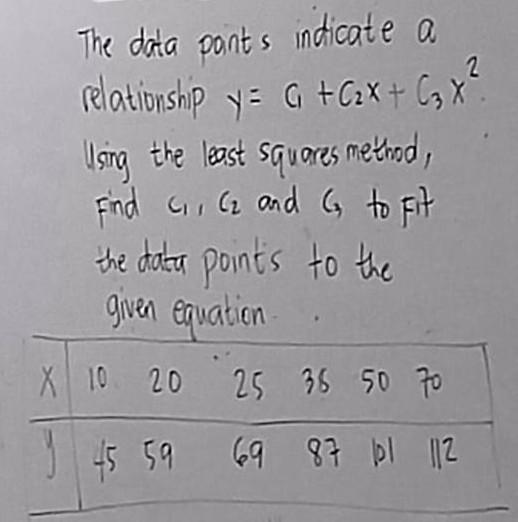 The data points indicate a
relationship y = C₁ + C₂x + C₃x².
Using the least squares method,
Find C₁, C₂ and C₃ to Fit
the data points to the
given equation.
X 10 20 25 36 50 70
y 45 59 69 87 101 112